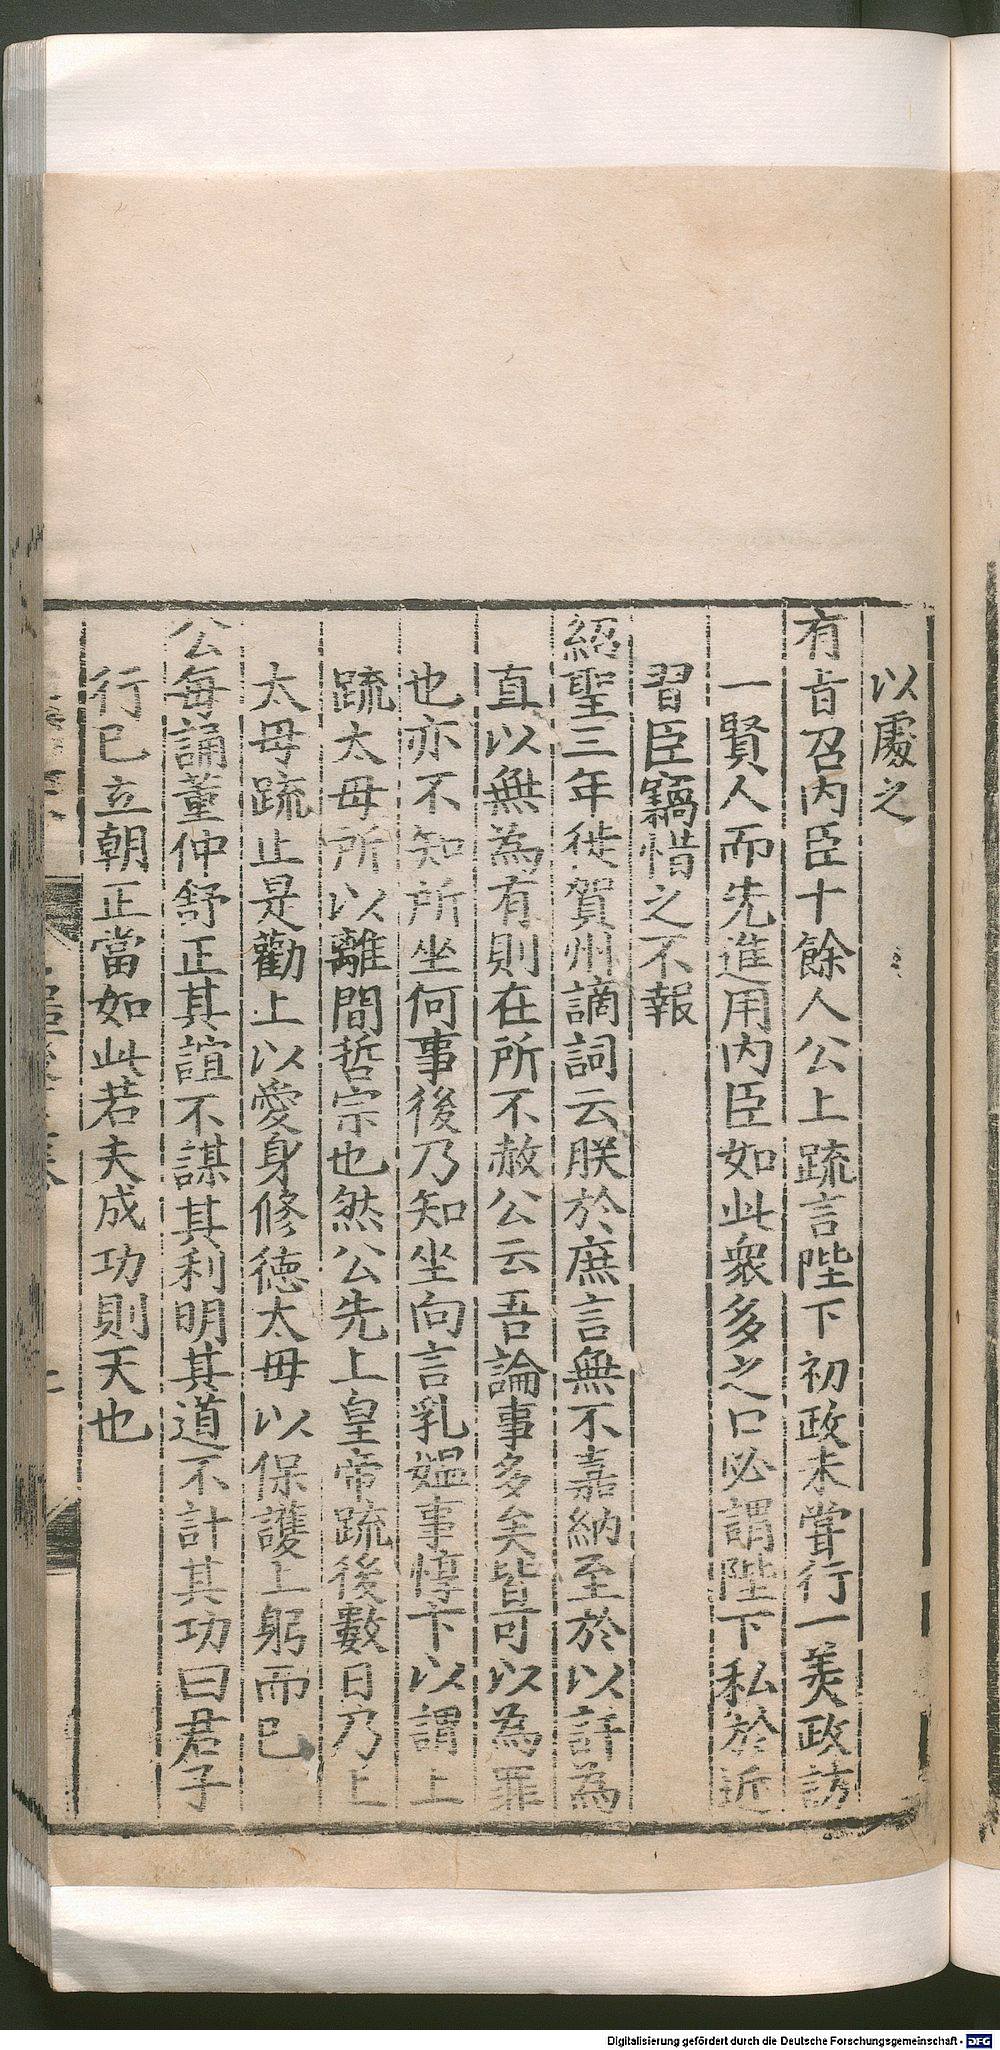 以處之
有旨召内臣十餘人公上疏言陛下初政未甞行一美政訪
一賢人而先進用内臣如此衆多之口必謂陛下私於近
習臣竊惜之不報
紹聖三年徙賀州謫詞云朕於庶言無不嘉納至於以訐為
直以無為有則在所不赦公云吾論事多矣皆可以為罪
也亦不知所坐何事後乃知坐向言乳媼事惇卞以謂上
疏太母所以離間哲宗也然公先上皇帝疏後數日乃上
太母疏止是勸上以愛身修德太母以保護上躬而已
公每誦董仲舒正其誼不謀其利明其道不計其功曰君子
行已立朝正當如此若夫成功則天也
Digitalisierung gefördert durch die Deutsche Forschungsgemeinschaft - DFG